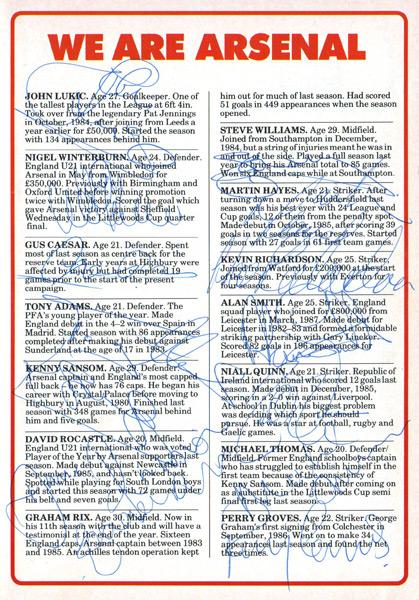 WE ARE ARSENAL
JOHN LUKIC. Age 27. Goalkeeper. One of
the tallest players in the League at 6ft 4in.
Took over from the legendary Pat Jennings
in October, 1984, after joining from Leeds a
year earlier for £50,000. Started the season
with 134 appearances behind him.
NIGEL WINTERBURN. Age 24. Defender.
England U21 international who joined
Arsenal in May from Wimbledon for
£350,000. Previously with Birmingham and
Oxford United before winning promotion
twice with Wimbledon. Scored the goal which
gave Arsenal victory against Sheffield
Wednesday in the Littlewoods Cup quarter
final.
GUS CAESAR. Age 21. Defender. Spent
most of last season as centre back for the
reserve team. Early years at Highbury were
affected by injury but had completed 19
games prior to the start of the present
campaign.
TONY ADAMS. Age 21. Defender. The
PFA's young player of the year. Made
England debut in the 4—2 win over Spain in
Madrid. Started season with 86 appearances
completed after making his debut against
Sunderland at the age of 17 in 1983.
KENNY SANSOM. Age 29. Defender.
Arsenal captain and England's most capped
full back – he now has 76 caps. He began his
career with Crystal Palace before moving to
Highbury in August, 1980. Finished last
season with 348 games for Arsenal behind
him and five goals.
DAVID ROCASTLE. Age 20. Midfield.
England U21 international who was voted
Player of the Year by Arsenal supporters last
season. Made debut against Newcastle in
September, 1985, and hasn't looked back.
Spotted while playing for South London boys
and started this season with 72 games under
his belt and seven goals.
GRAHAM RIX. Age 30. Midfield. Now in
his 11th season with the club and will have a
testimonial at the end of the year. Sixteen
England caps. Arsenal captain between 1983
and 1985. An achilles tendon operation kept
him out for much of last season. Had scored
51 goals in 449 appearances when the season
opened.
STEVE WILLIAMS. Age 29. Midfield.
Joined from Southampton in December,
1984, but a string of injuries meant he was in
and out of the side. Played a full season last
year to bring his Arsenal total to 85 games.
Won six England caps while at Southampton.
MARTIN HAYES. Age 21. Striker. After
turning down a move to Huddersfield last
season was his best ever with 24 League and
Cup goals, 12 of them from the penalty spot.
Made debut in October, 1985, after scoring 39
goals in two seasons for the reserves. Started
season with 27 goals in 61 first team games.
KEVIN RICHARDSON. Age 25. Striker.
Joined from Watford for £200,000 at the start
of the season. Previously with Everton for
four seasons.
ALAN SMITH. Age 25. Striker. England
squad player who joined for £800,000 from
Leicester in March, 1987. Made debut for
Leicester in 1982–83 and formed a formidable
striking partnership with Gary Lineker.
Scored 82 goals in 196 appearances for
Leicester.
NIALL QUINN. Age 21. Striker. Republic of
Ireland international who scored 12 goals last
season. Made debut in December, 1985,
scoring in a 2–0 win against Liverpool.
At school in Dublin his biggest problem
was deciding which sport he should
pursue. He was a star at football, rugby and
Gaelic games.
MICHAEL THOMAS. Age 20. Defender/
Midfield. Former England schoolboys captain
who has struggled to establish himself in the
first team because of the consistency of
Kenny Sansom. Made debut after coming on
as a substitute in the Littlewoods Cup semi
final first leg last season.
PERRY GROVES. Age 22. Striker. George
Graham's first signing from Colchester in
September, 1986. Went on to make 34
appearances last season and found the net
three times.